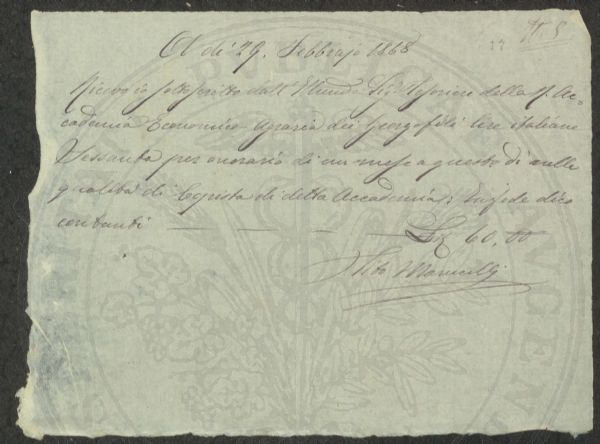 N. 8
A dì 29. Febbrajo 1868
Ricevo io sottoscritto dall' Illmo Sig. Tesoriere della R. Ac=
cademia Economico Agraria dei Georgofili lire italiane
Sessanta per onorario di un mese a questo dì nella
qualità di Copista di detta Accademia; In fede dico
contanti — — — — 60,00
Tito